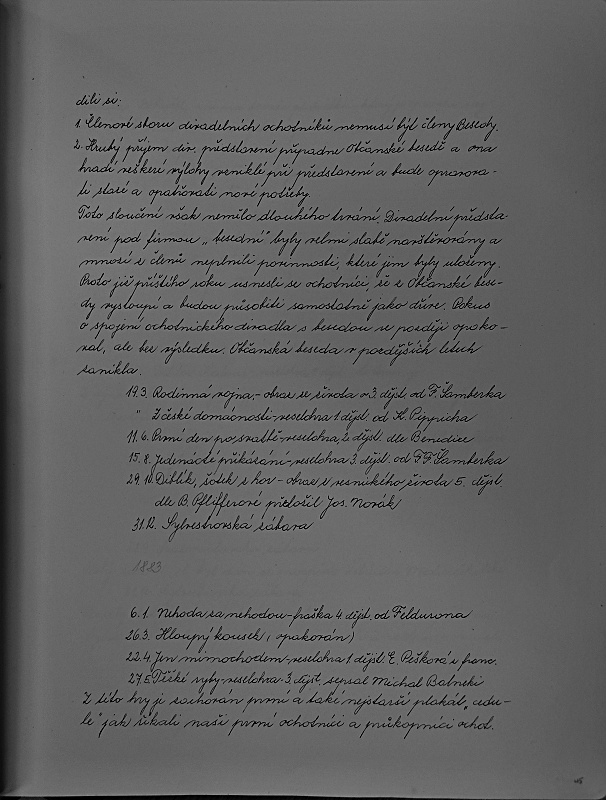 dili si:
1. Členové sboru divadelních ochotníků nemusí být členy Besedy.
2. Hrubý příjem div. představení připadne Občanské besedě a ona
hradí veškeré výlohy vzniklé při představení a bude opravova-
ti staré a opatřovati nové potřeby.
Toto sloučení však nemělo dlouhého trvání. Divadelní předsta-
vení pod firmou „besední" byly velmi slabě navštěvovány a
mnozí z členů neplnili povinnosti, které jim byly uloženy.
Proto již příštího roku usnesli se ochotníci, že z Občanské bese-
dy vystoupí a budou působiti samostatně jako dříve. Pokus
o spojení ochotnického divadla s besedou se později opako-
val, ale bez výsledku. Občanská beseda v pozdějších letech
zanikla.
19.3. Rodinná vojna,- obraz ze života o 3. dějst. od F. Šamberka
" Z české domácnosti-veselohra 1. dějst. od K. Pippicha
11.6. První den po svatbě-veselohra, 2. dějst. dle Benedixe
15.8. Jedenácté přikázání,-veselohra 3. dějst. od F.F. Šamberka
29.10. Diblík, šotek z hor - obraz z vesnického života 5. dějst.
dle B. Pfeifferové přeložil Jos. Novák
31.12. Sylvestrovská zábava
1883
6.1. Nehoda za nehodou-fraška 4. dějst. od
26.3. Hloupý kousek (opakován)
22.4. Jen mimochodem-veselohra 1. dějst. E. Pešková z franc.
27.5. Těžké ryby-veselohra 3. dějst. sepsal Michal Balucki
Z této hry je zachován první a také nejstarší plakát „cedu-
le" jak říkali naši první ochotníci a průkopníci ochot.